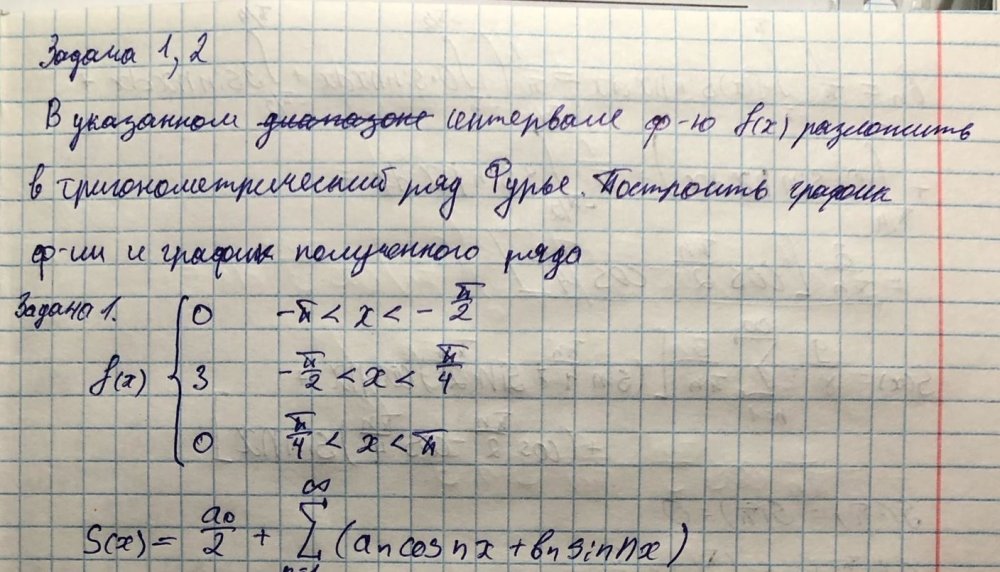 Задача 1, 2
В указанном диапазоне интервале ф-ю f(x) разложить
в тригонометрический ряд Фурье. Построить график
ф-ии и график полученного ряда
Задача 1.
f(x) { 0 -π < x < -π/2
3 -π/2 < x < π/4
0 π/4 < x < π
S(x) = a₀/2 + ∑ₙ₌₁^∞ (an cos nx + bn sin nx)